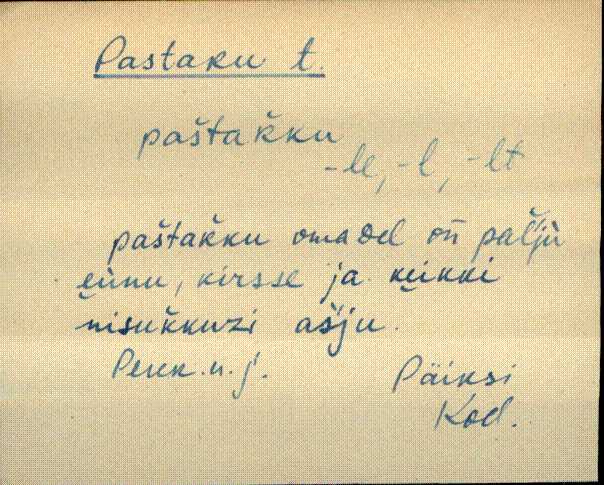 Pastaku t.
paštakku
-le, -l, -lt
paštakku omadel on pal'l'ù
eünu, kirsse ja keikki
nisukkuzi aš'ju.
Perek.n.j.
Päiksi
Kod.